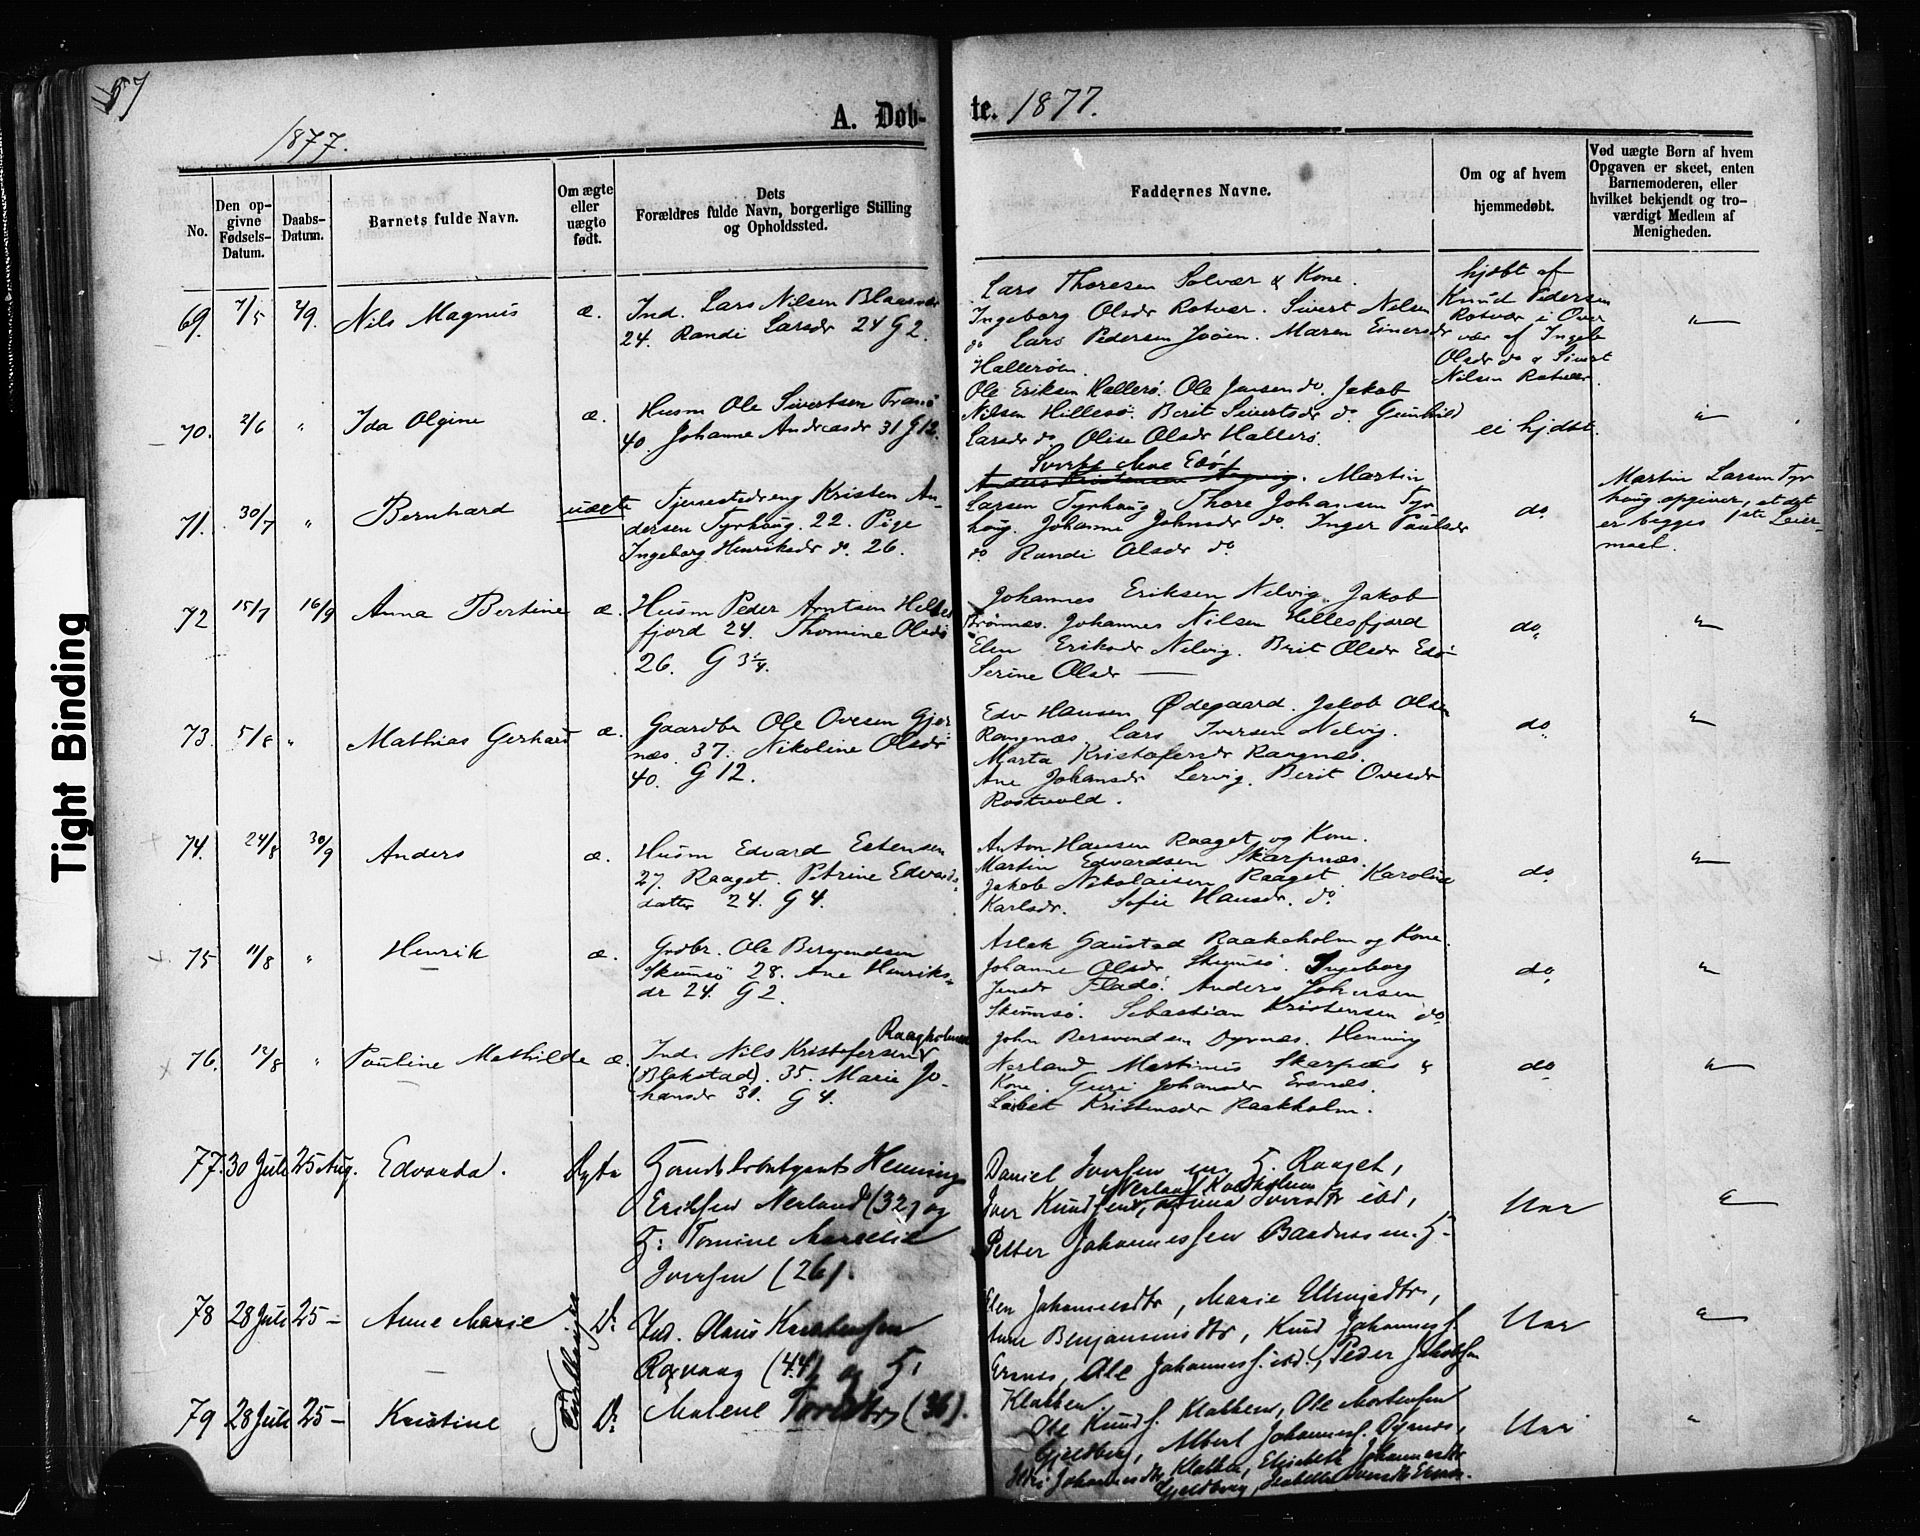 57
A. Døb-
te. 1877.
1877.
No.
Den op-
givne
Fødsels-
Datum.
Daabs-
Datum.
Barnets fulde Navn.
Om ægte
eller
uægte
født.
Dets
Forældres fulde Navn, borgerlige Stilling
og Opholdssted.
Faddernes Navne.
Om og af hvem
hjemmedøbt.
Ved uægte Børn af hvem
Opgaven er skeet, enten
Barnemoderen, eller
hvilket bekjendt og tro-
værdigt Medlem af
Menigheden.
69. 7/5 2/9. Nils Magnus æ.
Ind. Lars Nilsen
24. Randi Larsdr 24 G 2.
Lars Thoresen Solvær & Kone.
Ingeborg Olsdr Rotvær. Sivert Nilsen
do Lars Pedersen Joöen. Maren Einersdr
Hallerøen.
hjdbt af
Knud Pedersen
Rotvær i Over
vær af Ingeb
Olsdr do & Sivert
Nilsen Rotvær.
"
70. 2/6 " Ida Olgine æ.
Husm Ole Sivertsen Tranö
40. Johanne Andreasdr 31 G 12.
Ole Eriksen Hallerö. Ole Jansen do. Jakob
Nilsen Hillesö. Berit Sivertsdr do Gunhild
Larsdr do. Olise Olsdr Hallerö.
ei hjdöbt.
"
71. 30/7 " Bernhard uægte
Tjenestedreng Kristen An-
dersen Tyrhaug. 22. Pige
Ingeborg Henriksdr do. 26.
Anders Kristensen. Martin
Larsen Tyrhaug Thore Johansen Tyr
haug. Johanne Johnsdr do. Inger Paulsdr
do Randi Olsdr do
do.
Martin Larsen Tyr
haug opgiver, at det
er begges 1ste Leier-
maal.
72 15/7 16/9 Anna Bertine æ.
Husm Peder Arntsen Helles
fjord 24. Thomine Olsdr
26. G 3/4.
Johannes Eriksen Nelvig. Jakob
Johannes Nilsen Hillesfjord
Elen Eriksdr Nelvig. Brit Olsdr Edö
Serine Olsdr —
do.
"
73. 5/8 " Mathias Gerhard æ.
Gaardbr Ole Ovesen Gjer
næs. 37. Nikoline Olsdr
40. G 12.
Edv Hansen Ødegaard. Jakob Olsen
Rangnæs Lars Iversen Nelvig.
Marta Kristofersdr Rangnæs.
Ane Johansdr Lervig. Berit Ovesdr
Rostvold.
do.
"
74. 24/8 30/9 Anders æ.
Husm Edvard Estensen
27. Raaget. Petrine Edvards-
datter 24. G 4.
Anton Hansen Raaget og Kone.
Martin Edvardsen Skarpnæs.
Jakob Nikolaisen Raaget. Karoline
Karlsdr. Sofie Hansdr. do.
do.
"
75 11/8 " Henrik æ.
Grdbr. Ole Bersvendsen
Skumsö 28. Ane Henriks-
dr 24. G 2.
Aslak Gaustad Raakeholm og Kone.
Johanne Olsdr Skumsö. Ingeborg
Jensdr Fladö. Anders Johnsen
Skumsö. Sebastian Kristensen do.
do.
"
76. 12/8 " Pauline Mathilde æ.
Raagholmen
Ind. Nils Kristofersen
(Blakstad). 35. Marie Jo-
hansdr 31. G 4.
John Bersvendsen Dyrnæs. Henning
Nerland Martinus Skarpnæs &
Kone. Guri Johansdr Ersnæs.
Lisbet Kristensdr Raakholm.
do.
"
77. 30 Juli 25 Aug. Edvarda. Ægte
Henning
Eriksen Nerland (32) og
H: Tomine
Iversen (26).
Daniel Iversen m H. Raaget,
Iver Knudsen, Anna Iversdtr ibd,
Petter Johannessen Bardnes m. H.
Nei
"
78 28 Juli 25 – Anne Marie Do
Tvillinger
Ind. Olaus Karstensen
Roxvaag (44) og H:
Malene Toresdtr (36).
Elen Johannesdtr, Marie Ellingsdtr,
Ane Benjaminsdtr, Knud Johannesf.
Ersnes, Ole Johannesf. ibd., Peder Jakobsen
Klakken.
Nei
"
79 28 Juli 25 – Kristine Do
Ole Knudf. Klakken, Ole Mortensen
Gjeldberg, Albert Johannesf. Dyrnes,
Johannesdtr Klakken, Elisabeth Johannesdtr
Gjeldberg,
Nei
"
Tight Binding